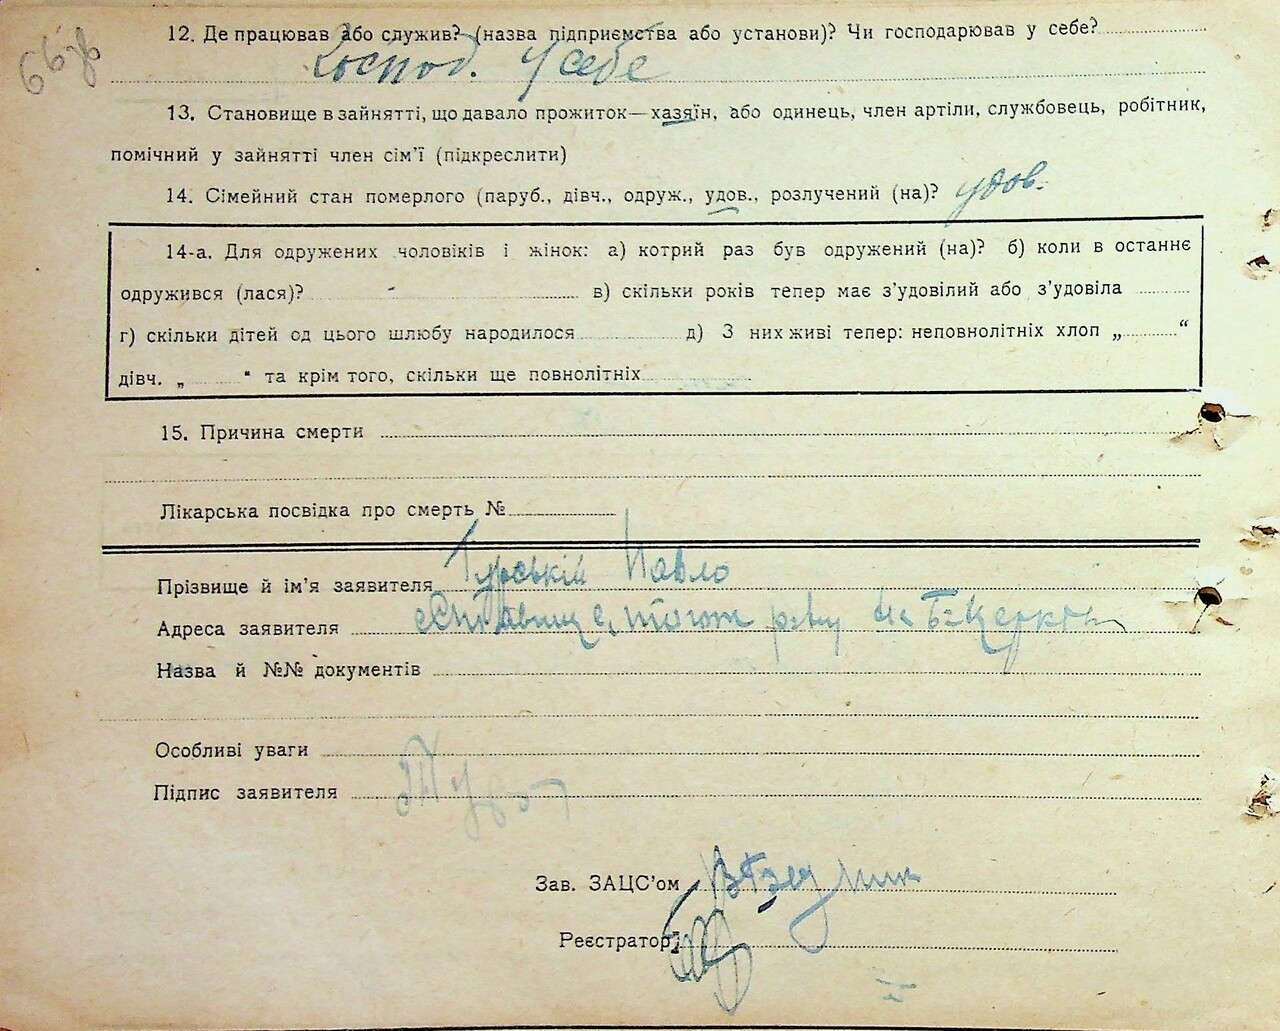 66зв
12. Де працював або служив? (назва підприємства або установи)? Чи господарював у себе?
Господ. у себе
13. Становище в зайнятті, що давало прожиток—хазяїн, або одинець, член артіли, службовець, робітник,
помічний у зайнятті член сім'ї (підкреслити)
14. Сімейний стан померлого (паруб., дівч., одруж., удов., розлучений (на)? удов.
14-а. Для одружених чоловіків і жінок: а) котрий раз був одружений (на)? б) коли в останнє
одружився (лася)? - в) скільки років тепер має з'удовілий або з'удовіла
г) скільки дітей од цього шлюбу народилося д) З них живі тепер: неповнолітніх хлоп „ “
дівч. „ “ та крім того, скільки ще повнолітніх
15. Причина смерти
Лікарська посвідка про смерть №
Прізвище й ім'я заявителя Турській Павло
Адреса заявителя
Назва й №№ документів
Особливі уваги
Підпис заявителя
Зав. ЗАЦС'ом
Реєстратор